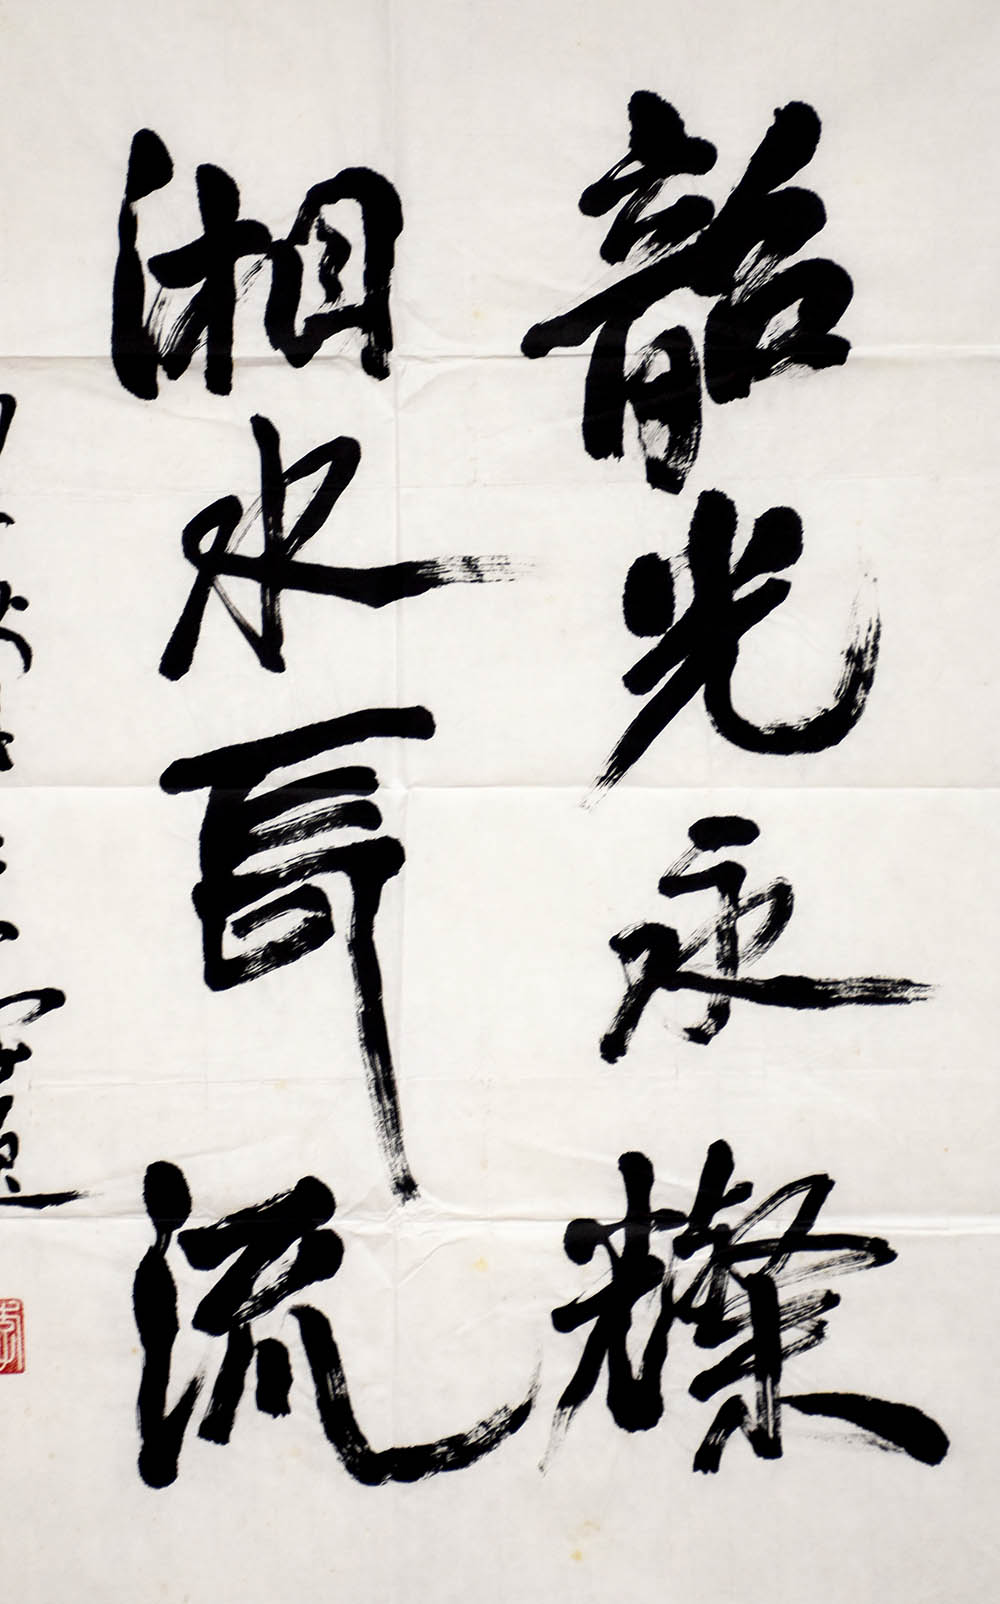 韶光永燦
湘水長流